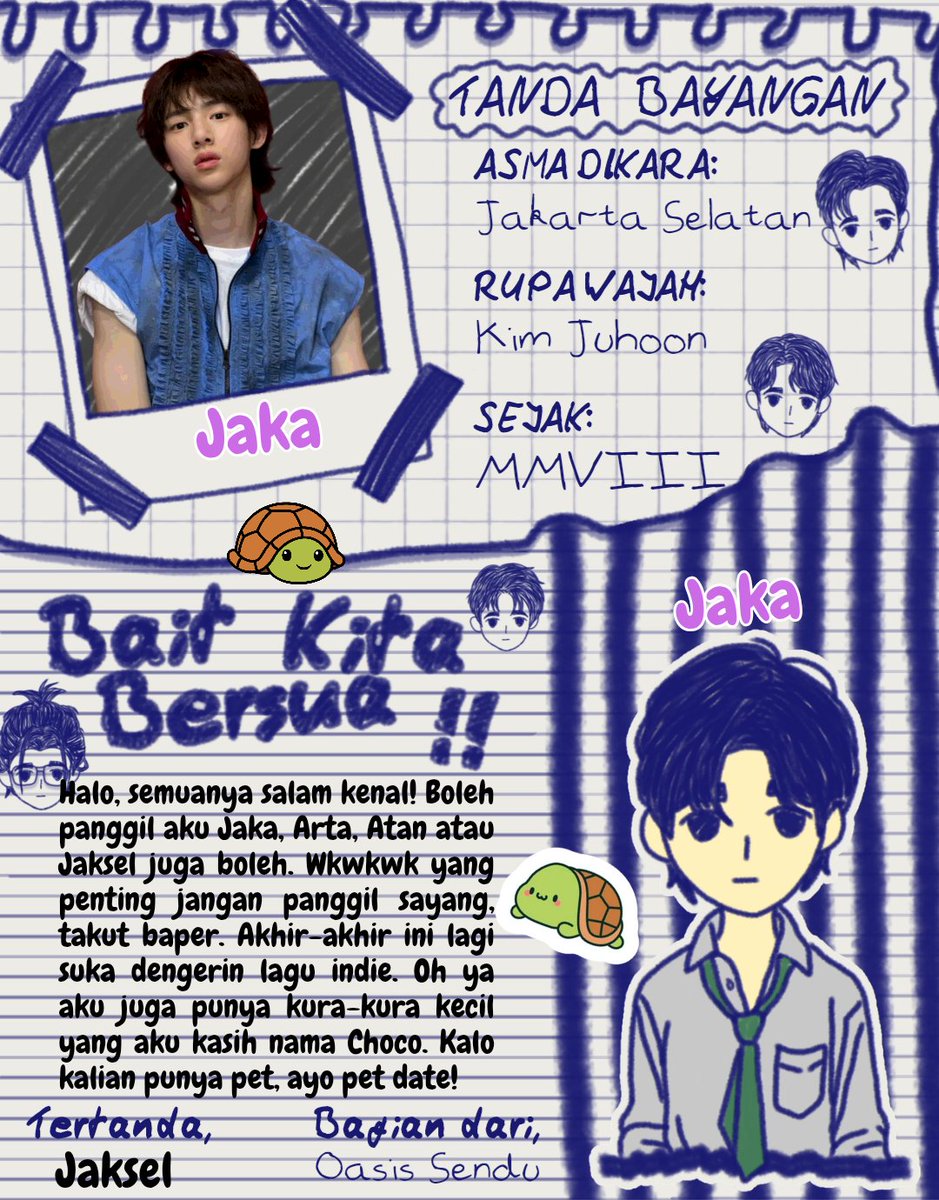 TANDA BAYANGAN
ASMA DIKARA:
Jakarta Selatan
RUPA WAJAH:
Kim Juhoon
SEJAK:
MMVIII
Jaka
Bait Kita
Bersua !!
Halo, semuanya salam kenal! Boleh
panggil aku Jaka, Arta, Atan atau
Jaksel juga boleh. Wkwkwk yang
penting jangan panggil sayang,
takut baper. Akhir-akhir ini lagi
suka dengerin lagu indie. Oh ya
aku juga punya kura-kura kecil
yang aku kasih nama Choco. Kalo
kalian punya pet, ayo pet date!
Tertanda,
Jaksel
Bagian dari,
Oasis Sendu
Jaka